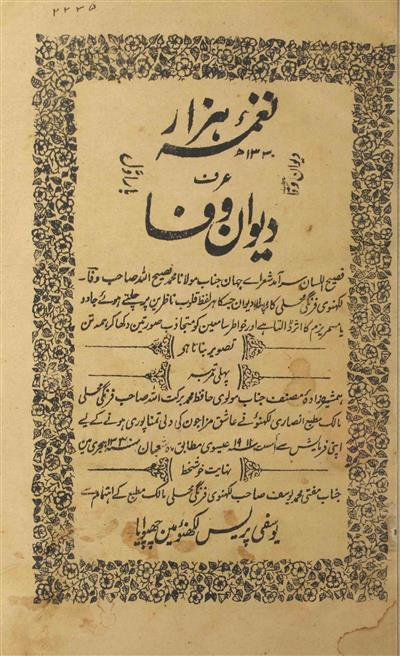 ۲۲۳۵
نغمۂ ہزار
۱۳۳۰ھ
دیوان وفا
بار اوّل
عرف
دیوان وفا
فصیح اللسان سرآمد شعراے جہان جناب مولانا محمد فصیح اللہ صاحب وفا
لکھنوی فرنگی محلی کا وہ پہلا دیوان جسکا ہر لفظ قلوب ناظرین پر چلتے ہوئے جادو
یا مسمریزم کا اثر ڈالتا ہے اور خواطر سامعین کو متجاذب صورتین دکھا کر ہمہ تن
تصویر بناتا ہو
پہلی مرتبہ
ہمشیرزادہ مصنف جناب مولوی حافظ محمد برکت اللہ صاحب فرنگی محلی
مالک مطبع انصاری لکھنؤ نے عاشق مزاجون کی دلی تمنا پوری ہونے کے لیے
اپنی فرمایش سے اگست ۱۹۱۱ عیسوی مطابق شعبان سنہ ۱۳۳۰ ہجری مین
نہایت خوشخط
جناب مفتی محمد یوسف صاحب لکھنوی فرنگی محلی مالک مطبع کے اہتمام سے
یوسفی پریس لکھنؤ مین چھپوایا